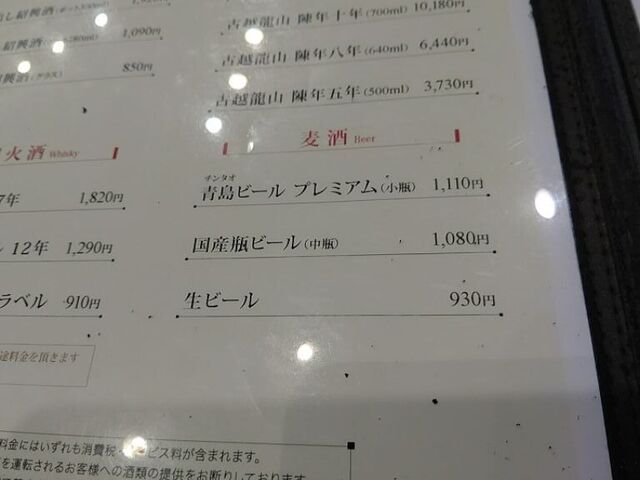 紹興酒
1,090円
850円
古越龍山 陳年十年(700ml) 10,180円
古越龍山 陳年八年(640ml) 6,440円
古越龍山 陳年五年(500ml) 3,730円
火酒 Whisky
7年 1,820円
12年 1,290円
ラベル 910円
途料金を頂きます
麦酒 Beer
チンタオ
青島ビール プレミアム(小瓶) 1,110円
国産瓶ビール(中瓶) 1,080円
生ビール 930円
料金にはいずれも消費税・サービス料が含まれます。
を運転されるお客様への酒類の提供をお断りしております。